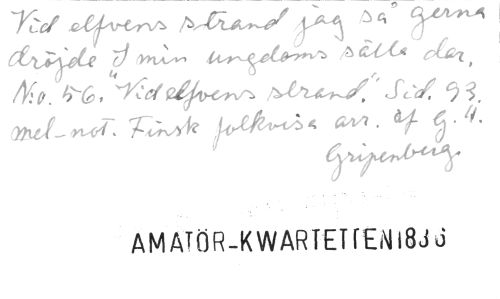 Vid elfvens strand jag så gerna
dröjde I min ungdoms sälla dar.
N:o. 56. "Vid elfvens strand." Sid. 93.
mel-not. Finsk folkvisa arr. af G. A.
Gripenberg.
AMATÖR-KWARTETTEN 1836